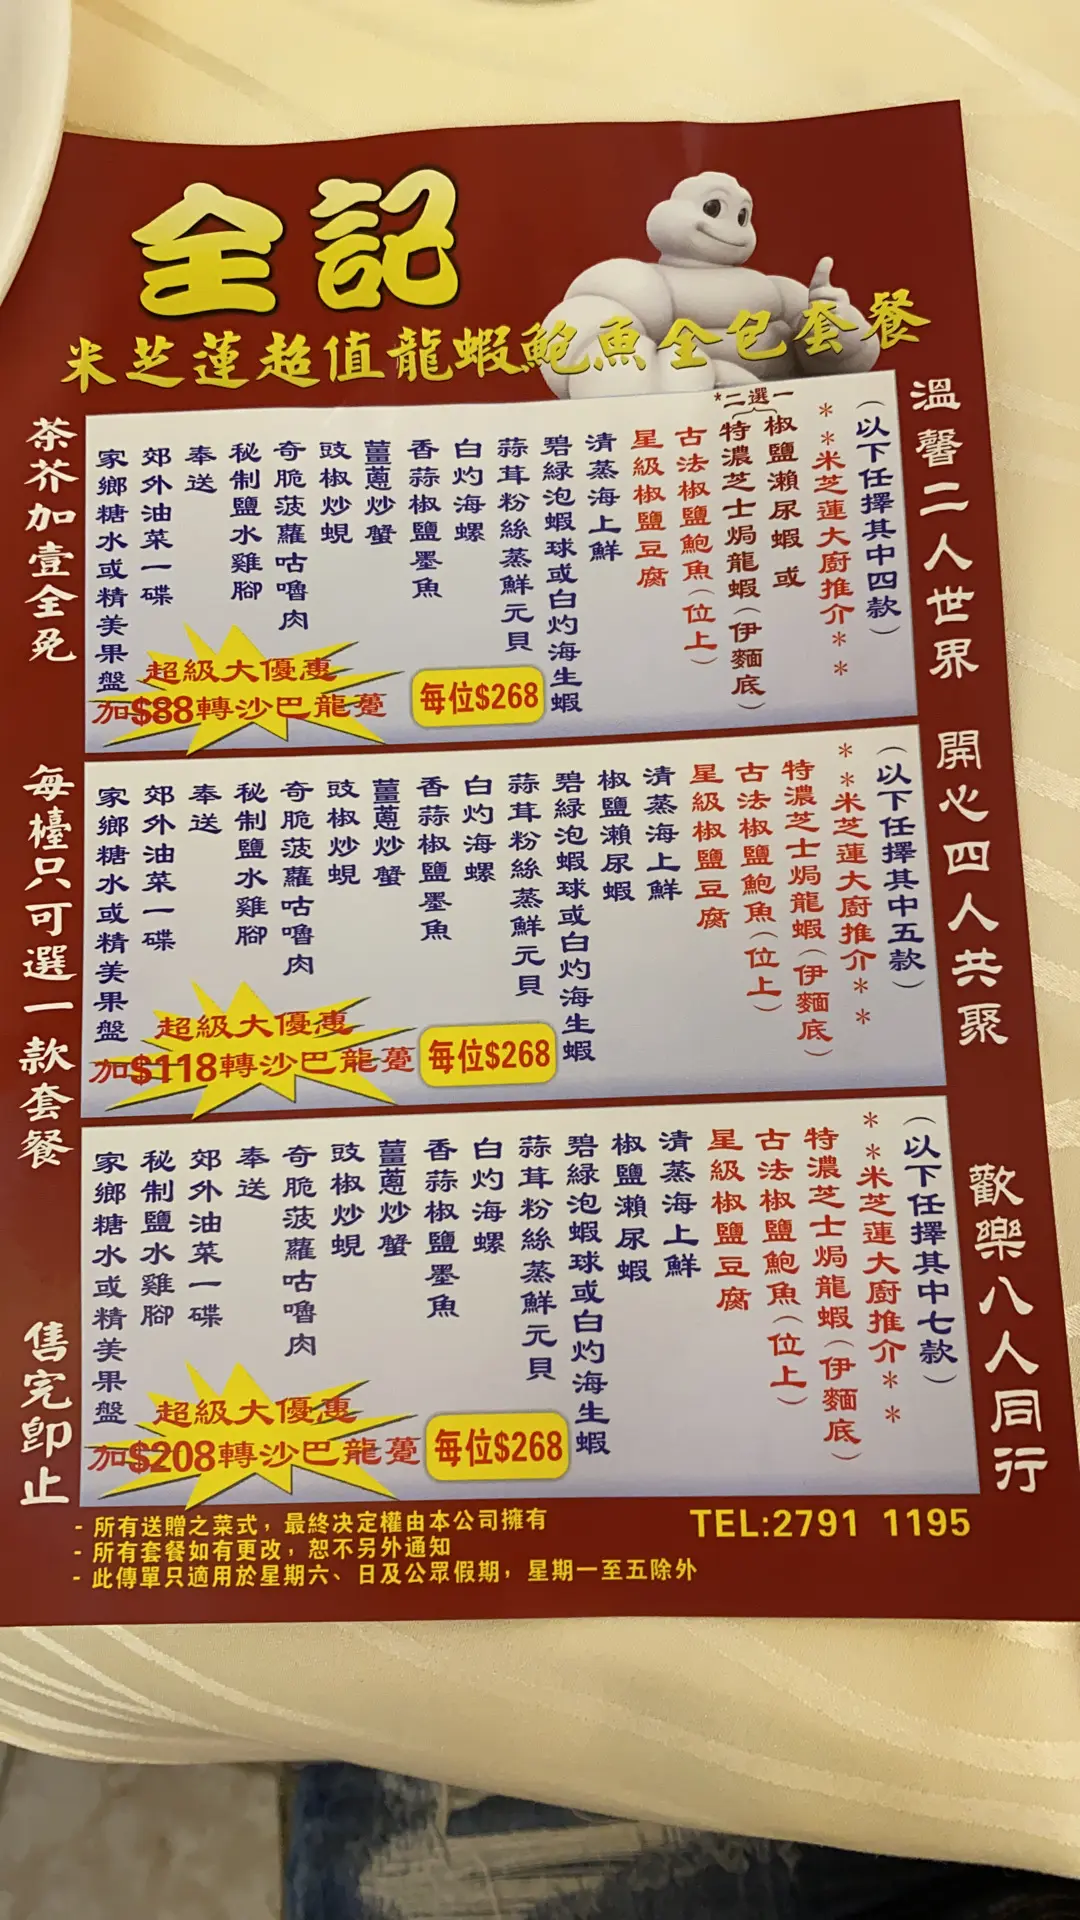 全記
米芝蓮超值龍蝦鮑魚全包套餐
溫馨二人世界
（以下任擇其中四款）
**米芝蓮大廚推介**
*二選一
椒鹽瀨尿蝦 或
特濃芝士焗龍蝦（伊麵底）
古法椒鹽鮑魚（位上）
星級椒鹽豆腐
清蒸海上鮮
碧綠泡蝦球或白灼海生蝦
蒜茸粉絲蒸鮮元貝
白灼海螺
香蒜椒鹽墨魚
薑蔥炒蟹
豉椒炒蜆
奇脆菠蘿咕嚕肉
秘制鹽水雞腳
奉送
郊外油菜一碟
家鄉糖水或精美果盤
超級大優惠
加$88轉沙巴龍躉
每位$268
開心四人共聚
（以下任擇其中五款）
**米芝蓮大廚推介**
特濃芝士焗龍蝦（伊麵底）
古法椒鹽鮑魚（位上）
星級椒鹽豆腐
清蒸海上鮮
椒鹽瀨尿蝦
碧綠泡蝦球或白灼海生蝦
蒜茸粉絲蒸鮮元貝
白灼海螺
香蒜椒鹽墨魚
薑蔥炒蟹
豉椒炒蜆
奇脆菠蘿咕嚕肉
秘制鹽水雞腳
奉送
郊外油菜一碟
家鄉糖水或精美果盤
超級大優惠
加$118轉沙巴龍躉
每位$268
歡樂八人同行
（以下任擇其中七款）
**米芝蓮大廚推介**
特濃芝士焗龍蝦（伊麵底）
古法椒鹽鮑魚（位上）
星級椒鹽豆腐
清蒸海上鮮
椒鹽瀨尿蝦
碧綠泡蝦球或白灼海生蝦
蒜茸粉絲蒸鮮元貝
白灼海螺
香蒜椒鹽墨魚
薑蔥炒蟹
豉椒炒蜆
奇脆菠蘿咕嚕肉
奉送
郊外油菜一碟
秘制鹽水雞腳
家鄉糖水或精美果盤
超級大優惠
加$208轉沙巴龍躉
每位$268
茶芥加壹全免
每檯只可選一款套餐
售完即止
- 所有送贈之菜式，最終決定權由本公司擁有
- 所有套餐如有更改，恕不另外通知
- 此傳單只適用於星期六、日及公眾假期，星期一至五除外
TEL:2791 1195